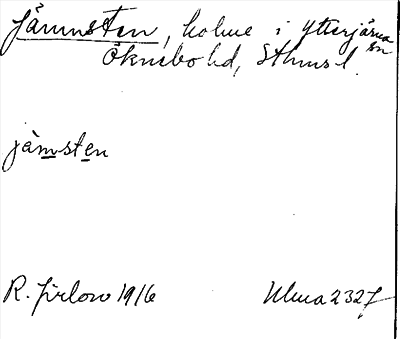 Jämnsten, holme i Ytterjärna sn
Öknebo hd, Sthms l.
jämsten
R. Jirlow 1916 Ulma 232 7